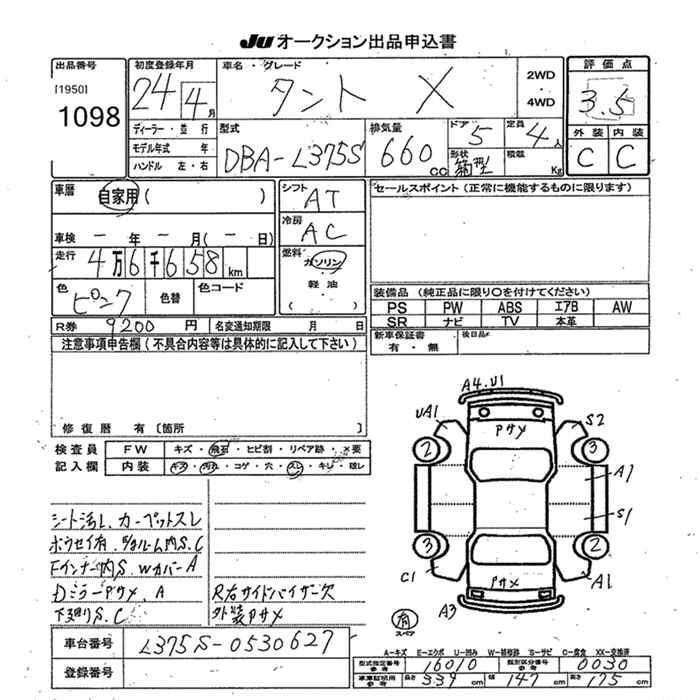 JU オークション出品申込書
出品番号 初度登録年月 車名・グレード 2WD・4WD 評価点
[1950] 1098 24 4月 タント X 3.5
ディーラー・並行 型式 排気量 ドア 5 定員 4人 外装 内装
モデル年式 年 DBA-L375S 660cc 形状 箱型 積載 Kg C C
ハンドル 左・右
車歴 自家用( ) シフト AT セールスポイント(正常に機能するものに限ります)
車検 ー年ー月(ー日) 冷房 AC
走行 4万6千658km 燃料 ガソリン・軽油・( )
色 ピンク 色替 色コード 装備品(純正品に限り○を付けてください)
PS PW ABS エアB AW
SR ナビ TV 本革
R券 9200円 名変通知期限 月 日 新車保証書 有・無 後日品
注意事項申告欄(不具合内容等は具体的に記入して下さい)
修復歴 有〔箇所 〕
検査員 FW キズ・飛石・ヒビ割・リペア跡・×要
記入欄 内装 キズ・汚れ・コゲ・穴・スレ・キレ・破レ
A4.U1
UA1 Pサメ S2
2 3
A1
S1
3 2
C1 Pサメ A1
A3 有 スペア
シート汚れ.カーペットスレ
ホウセイ有.E/ルーム内S.C
Fインナー内S.WカバーA
DミラーPサメ.A R右サイドバイザー欠
下廻りS.C 外装Pサメ
車台番号 L375S-0530627
登録番号
A−キズ E−エクボ U−凹み W−補修跡 S−サビ C−腐食 XX−交換済
型式指定番号 参考 16010 類別区分番号 参考 0030
車庫証明用 参考 長さ 339cm 幅 147cm 高さ 175cm